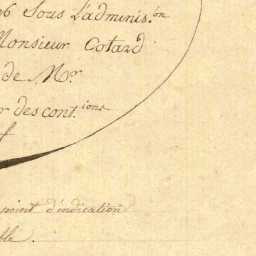 6 Sous L'adminis.on
Monsieur Cotard
de Mr
des cont.ions
point d'indication